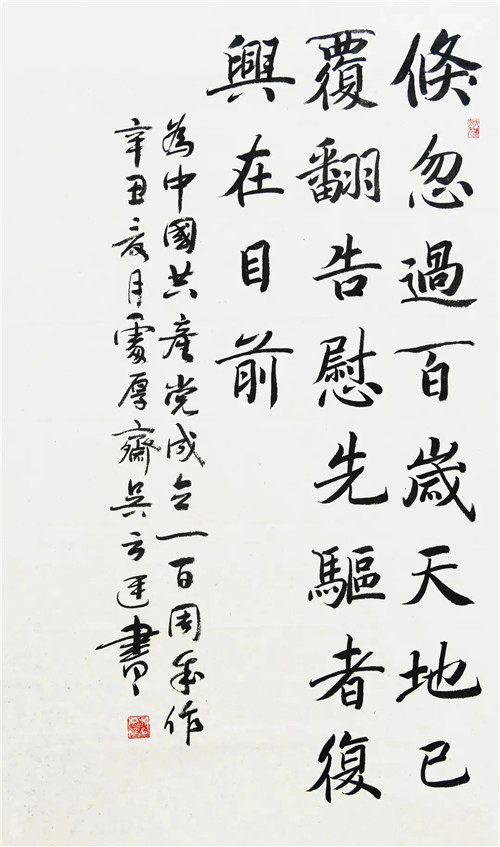 倏忽過百嵗天地已
覆翻告慰先驅者復
興在目前
為中國共產党成立一百周年作
辛丑夏月厚齋吳云書